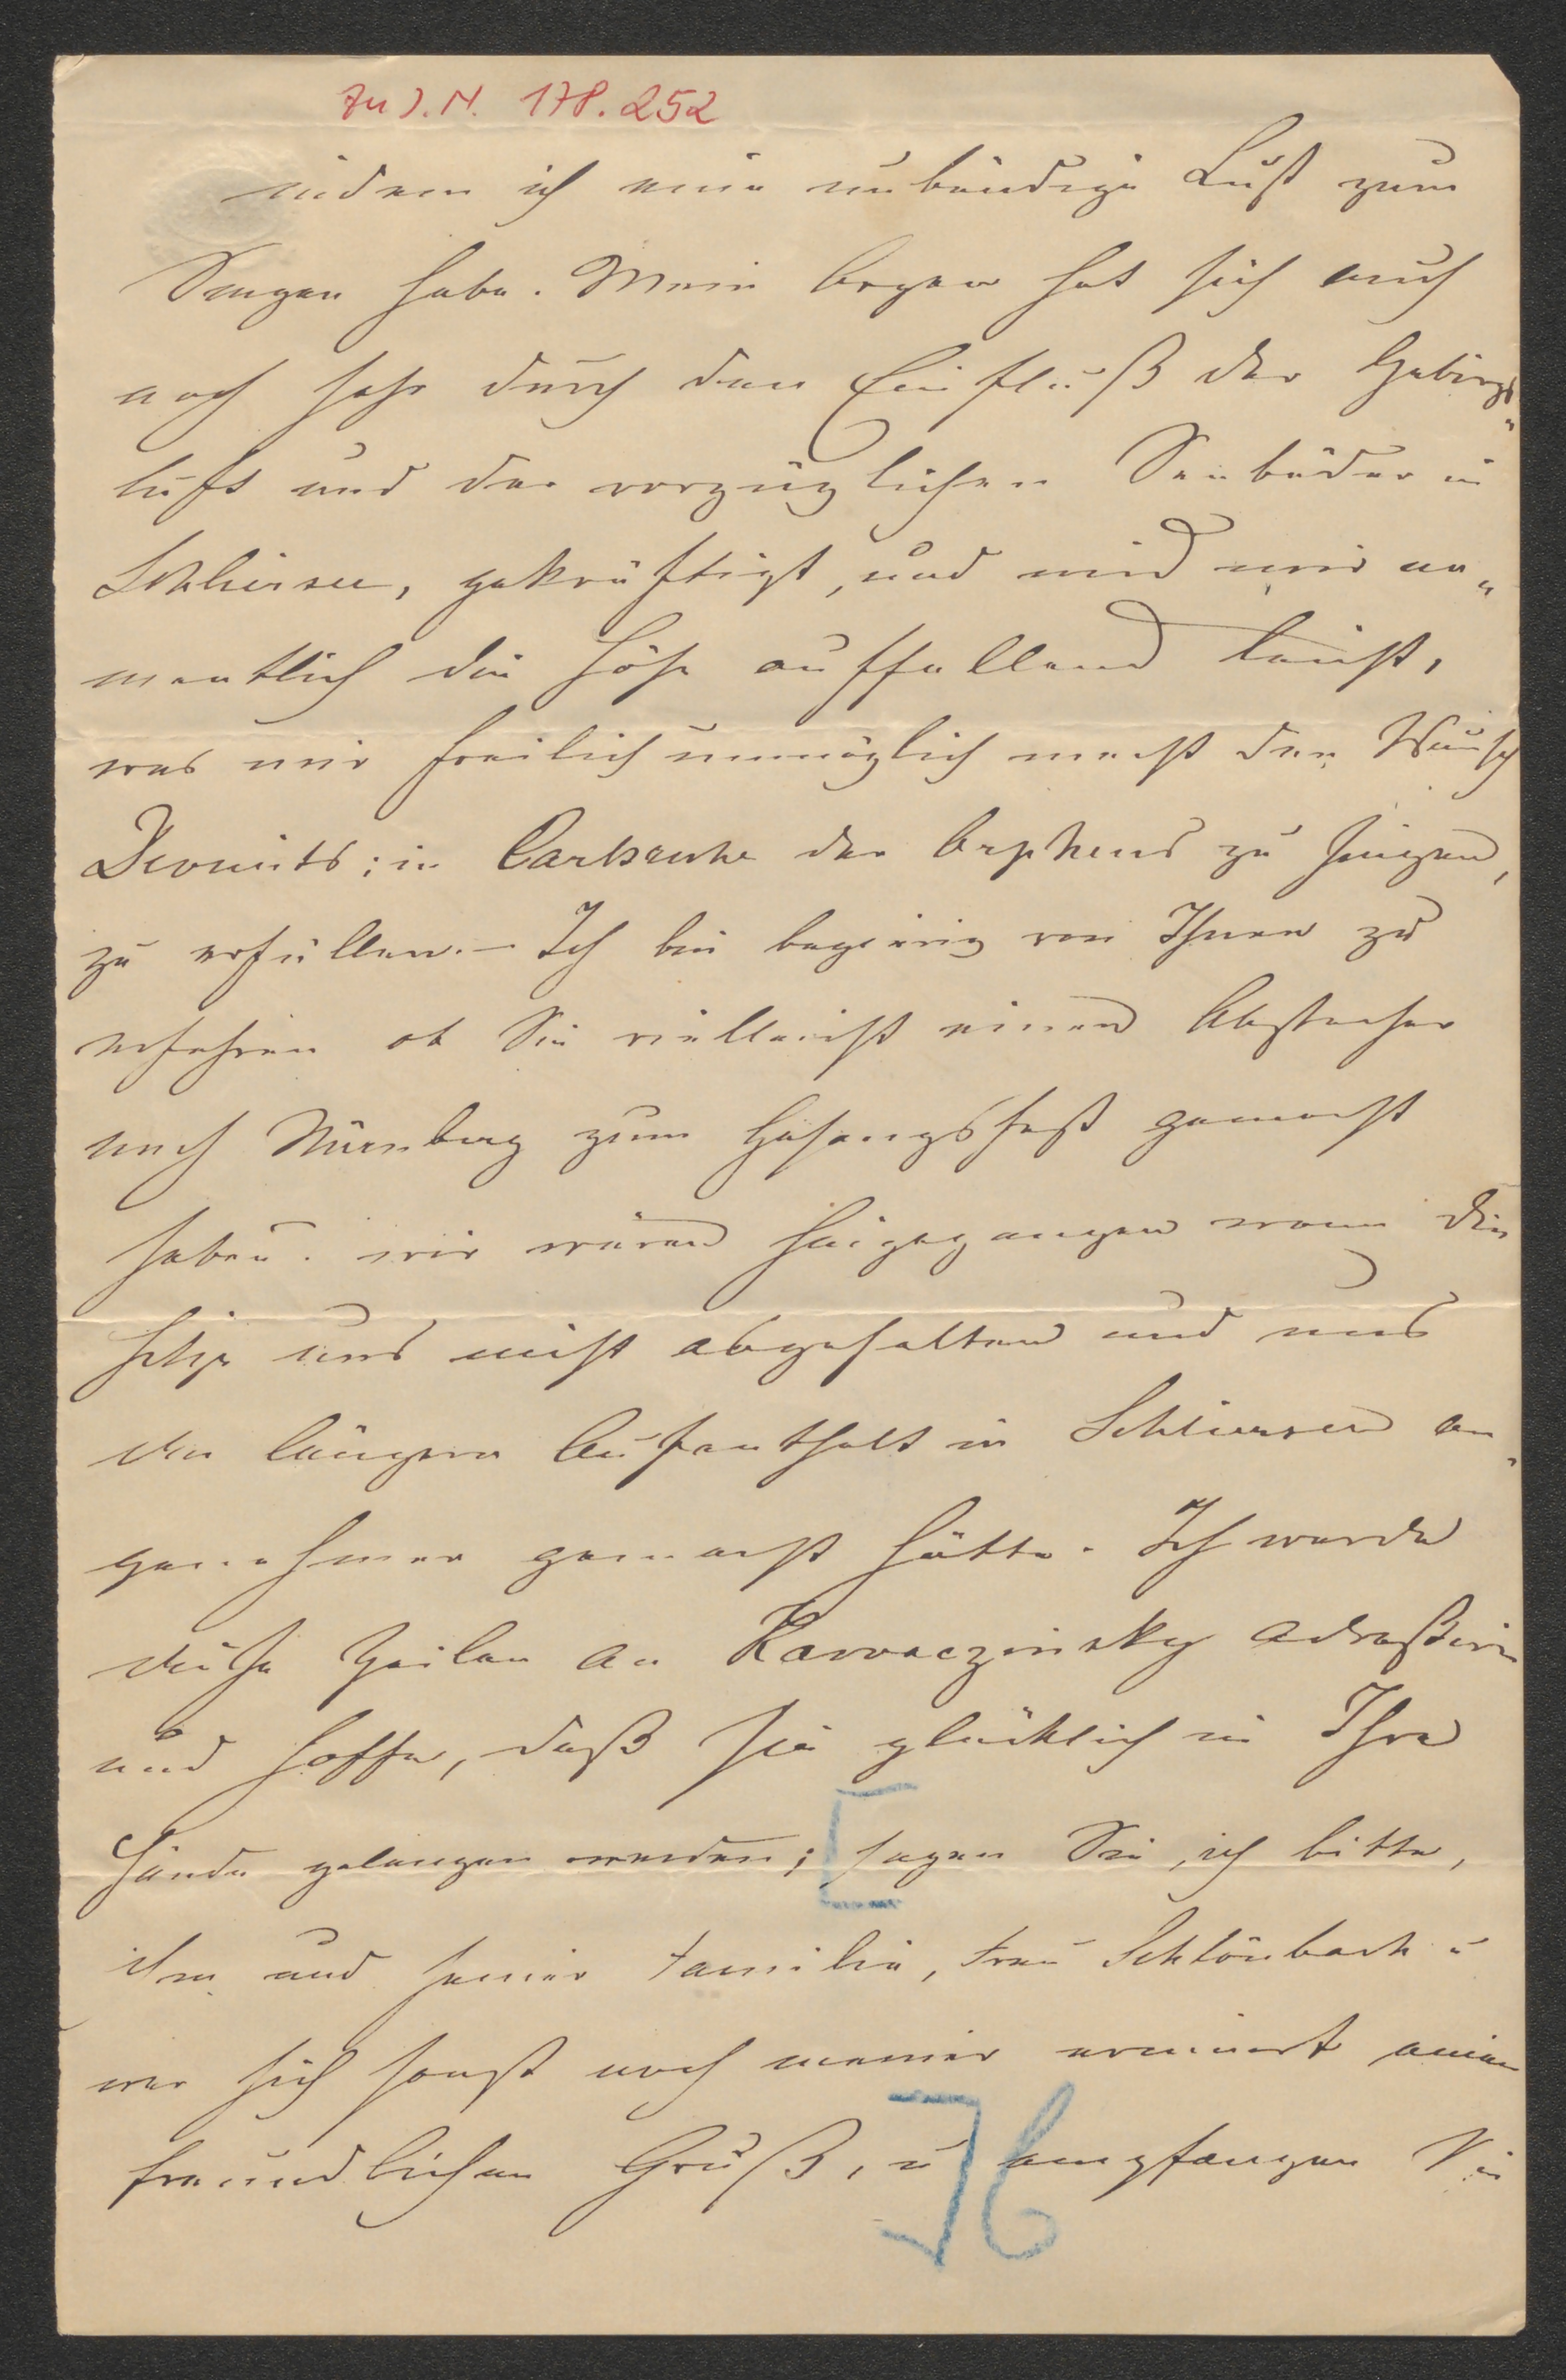 Zu J.N. 178.252
indem ich eine unbändige Lust zum
Singen habe. Mein Organ hat sich auch
noch sehr durch den Einfluß der Gebirgs"
luft und der vorzüglichen Seebäder in
Schliersee, gekräftigt, und wird mir na"
mentlich die Höhe auffallend leicht,
was mir freilich unmöglich macht den Wunsch
Devrients; in Carlsruhe den Orpheus zu singen,
zu erfüllen. – Ich bin begierig von Ihnen zu
erfahren ob Sie vielleicht einen Abstecher
nach Nürnberg zum Gesangsfest gemacht
haben. wir wären hingegangen wenn die
Hitze uns nicht abgehalten und uns
den längern Aufenthalt in Schliersee an"
genehmer gemacht hätte. Ich werde
diese Zeilen an Kawaczinsky adreßiren
und hoffe, daß sie glücklich in Ihre
Hände gelangen werden; sagen Sie, ich bitte,
ihm und seiner Familie, Frau Schlönbach u
wer sich sonst noch meiner erinnert einen
freundlichen Gruß, u empfangen Sie
76